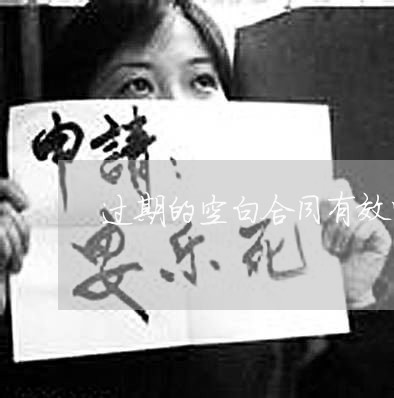 申請：
过期的空白合同有效
安乐死